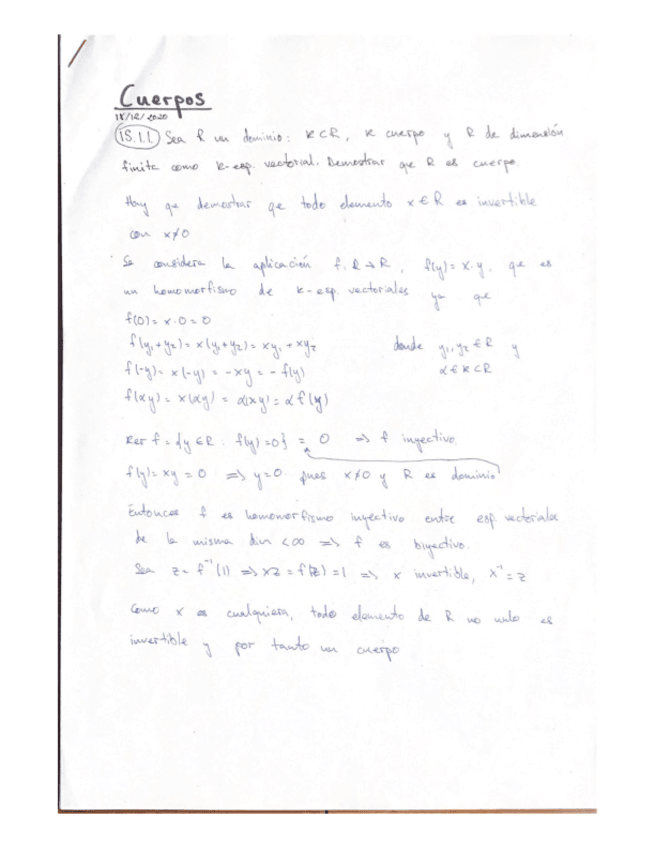 Cuerpos
18/12/2020
15.1.1. Sea R un dominio: K⊂R, K cuerpo y R de dimensión
finita como K-esp. vectorial. Demostrar que R es cuerpo.
Hay que demostrar que todo elemento x∈R es invertible
con x≠0
Se considera la aplicación f: R→R, f(y)= x·y, que es
un homomorfismo de K-esp. vectoriales ya que
f(0)= x·0=0
f(y₁+y₂)= x(y₁+y₂)= xy₁+xy₂ donde y₁,y₂∈R y
f(-y)= x(-y) = -xy = -f(y) α∈K⊂R
f(αy)= x(αy) = α(xy)= αf(y)
Ker f = {y∈R : f(y)=0} = 0 => f inyectivo.
f(y)= xy = 0 => y=0 pues x≠0 y R es dominio
Entonces f es homomorfismo inyectivo entre esp. vectoriales
de la misma dim <∞ => f es biyectivo.
Sea z= f⁻¹(1) => xz = f(z)=1 => x invertible, x⁻¹=z
Como x es cualquiera, todo elemento de R no nulo es
invertible y por tanto un cuerpo